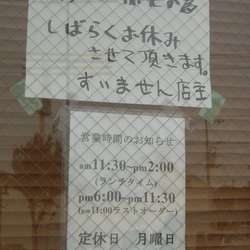 しばらくお休み
させて頂きます。
すいません 店主
営業時間のお知らせ
am11:30~pm2:00
(ランチタイム)
pm6:00~pm11:30
(pm11:00ラストオーダー)
定休日 月曜日